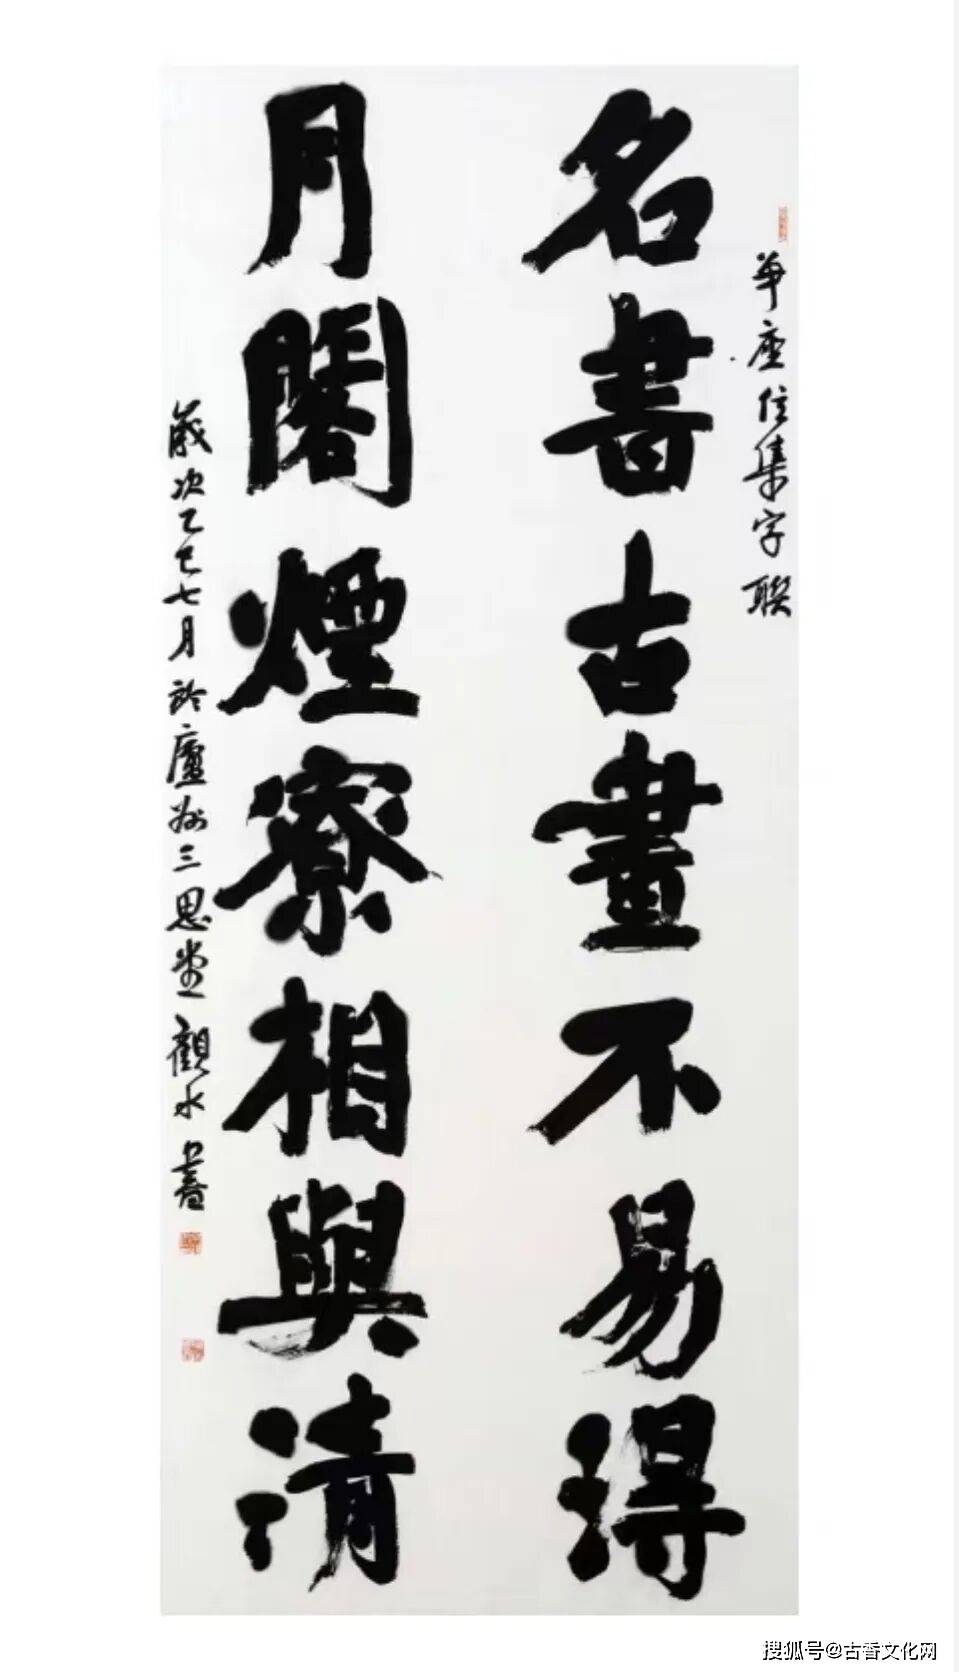 爭座位集字聯
名書古畫不易得
月閣煙寮相與清
歲次乙巳七月於廬州三思堂觀水書
搜狐号@古香文化网